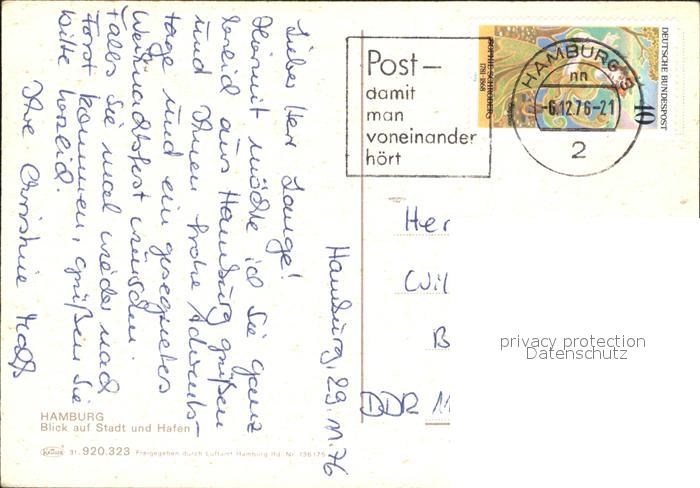 Hamburg, 29.11.76
Lieber Herr Lange!
Hiermit möchte ich Sie ganz
herzlich aus Hamburg grüßen
und Ihnen frohe Advents-
tage und ein gesegnetes
Weihnachtsfest wünschen.
Falls Sie mal wieder nach
Forst kommen, grüßen Sie
bitte herzlich.
Ihre Christine
Post –
damit
man
voneinander
hört
HAMBURG 3
nn
-6.12.76-21
2
DEUTSCHE BUNDESPOST
40
SOPHIE SCHRÖDER
1781-1868
Her
Wil
B
DDR 11
privacy protection
Datenschutz
HAMBURG
Blick auf Stadt und Hafen
Krüger 31.920.323 Freigegeben durch Luftamt Hamburg lfd. Nr. 136175